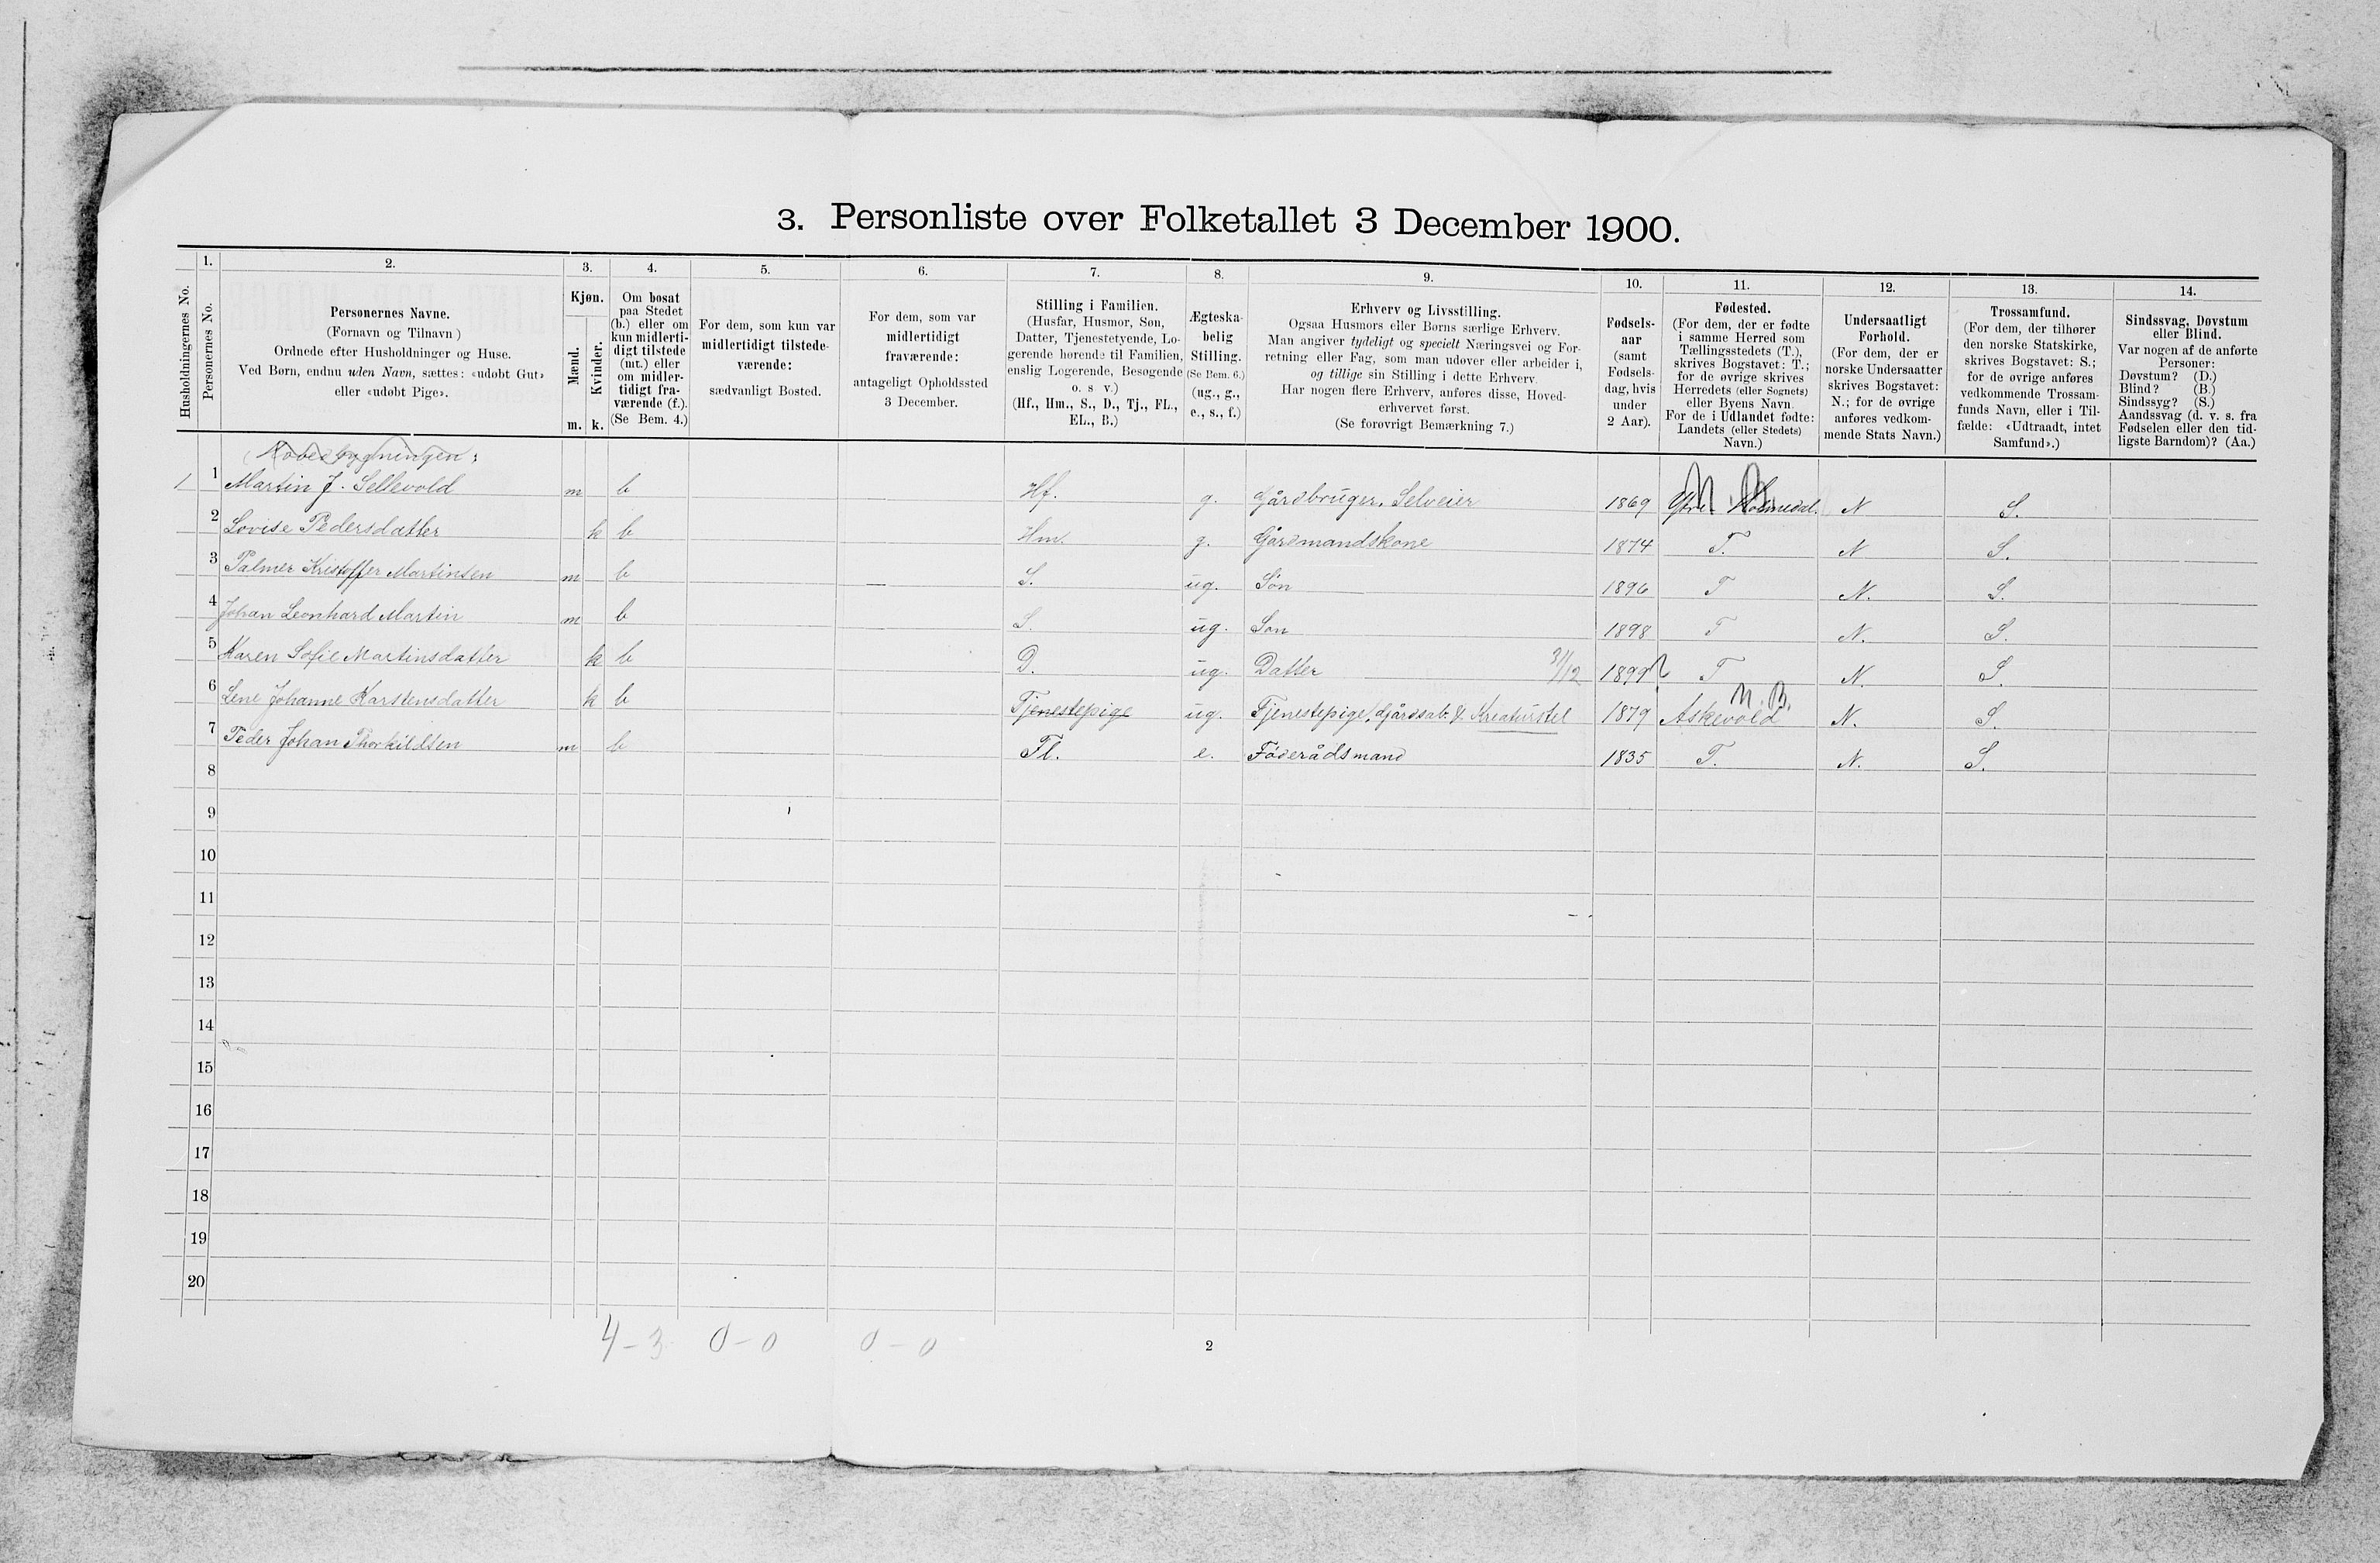 3. Personliste over Folketallet 3 December 1900.
Husholdningernes No.
1.
Personernes No.
2.
Personernes Navne.
(Fornavn og Tilnavn)
Ordnede efter Husholdninger og Huse.
Ved Børn, endnu uden Navn, sættes: «udøbt Gut»
eller «udøbt Pige».
3.
Kjøn.
Mænd.
Kvinder.
m. k.
4.
Om bosat
paa Stedet
(b.) eller om
kun midlerti-
digt tilstede
(mt.) eller
om midler-
tidigt fra-
værende (f.).
(Se Bem. 4.)
5.
For dem, som kun var
midlertidigt tilstede-
værende:
sædvanligt Bosted.
6.
For dem, som var
midlertidigt
fraværende:
antageligt Opholdssted
3 December.
7.
Stilling i Familien.
(Husfar, Husmor, Søn,
Datter, Tjenestetyende, Lo-
gerende hørende til Familien,
enslig Logerende, Besøgende
o. s v.)
(Hf., Hm., S., D., Tj., FL.,
EL., B.)
8.
Ægteska-
belig
Stilling.
(Se Bem. 6.)
(ug., g.,
e., s., f.)
9.
Erhverv og Livsstilling.
Ogsaa Husmors eller Børns særlige Erhverv.
Man angiver tydeligt og specielt Næringsvei og For-
retning eller Fag, som man udøver eller arbeider i,
og tillige sin Stilling i dette Erhverv.
Har nogen flere Erhverv, anføres disse, Hoved-
erhvervet først.
(Se forøvrigt Bemærkning 7.)
10.
Fødsels-
aar
(samt
Fødsels-
dag, hvis
under
2 Aar).
11.
Fødested.
(For dem, der er fødte
i samme Herred som
Tællingsstedets (T.),
skrives Bogstavet: T.;
for de øvrige skrives
Herredets (eller Sognets)
eller Byens Navn.
For de i Udlandet fødte:
Landets (eller Stedets)
Navn.)
12.
Undersaatligt
Forhold.
(For dem, der er
norske Undersaatter
skrives Bogstavet:
N.; for de øvrige
anføres vedkom-
mende Stats Navn.)
13.
Trossamfund.
(For dem, der tilhører
den norske Statskirke,
skrives Bogstavet: S.;
for de øvrige anføres
vedkommende Trossam-
funds Navn, eller i Til-
fælde: «Udtraadt, intet
Samfund».)
14.
Sindssvag, Døvstum
eller Blind.
Var nogen af de anførte
Personer:
Døvstum? (D.)
Blind? (B.)
Sindssyg? (S.)
Aandssvag (d. v. s. fra
Fødselen eller den tid-
ligste Barndom)? (Aa.)
1 1 Martin J. Sellevold m b Hf. g. Gårdbruger, Selveier 1869 Ytre Holmedal. N S.
2 Lovise Pedersdatter k b Hm. g. Gårdmandskone 1874 T. N S.
3 Palmer Kristoffer Martinsen m b S. ug. Søn 1896 T N. S.
4 Johan Leonhard Martin m b S. ug. Søn 1898 T N. S.
5 Karen Sofie Martinsdatter k b D. ug. Datter 31/12 1899 T N. S.
N. B.
6 Lene Johanne Karstensdatter k b Tjenestepige ug. Tjenestepige, Gårdsarb. & Kreaturstel 1879 Askevold N. S.
7 Peder Johan Thorkildsen m b Fl. e. Føderådsmand 1835 T. N. S.
8
9
10
11
12
13
14
15
16
17
18
19
20
4 - 3 0 - 0 0 - 0
2